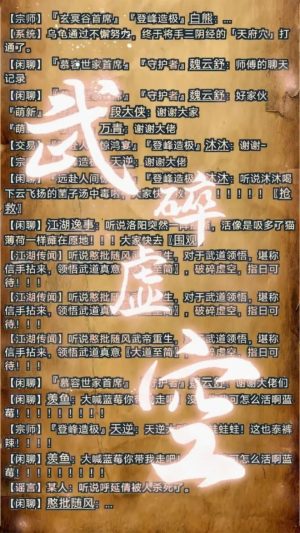 【宗师】『玄冥谷首席』『登峰造极』白熊：…
【系统】乌龟通过不懈努力，终于将手三阴经的「天府穴」打通了。
【闲聊】『慕容世家首席』『守护者』魏云舒：师傅的聊天记录
【闲聊】『慕容世家首席』『守护者』魏云舒：好家伙
『萌新』段大侠：谢谢大家
『萌新』万青：谢谢大佬
【交易】惊鸿宴』『登峰造极』沐沐：谢谢~
【宗师】『登峰造极』天逆：谢谢大佬
【闲聊】『远赴人间『登峰造极』沐沐：听说沐沐喝
下云飞扬的
救』
【闲聊】江湖逸事：听说洛阳突然一阵，活像是吸多了猫
薄荷一样瘫在原地！！！大家快去〖围观
【江湖传闻】听说憨批随风，对于武道领悟，堪称
信手拈来，领悟武道真意，破碎虚空，指日可
待！！！
【江湖传闻】听说憨批随风，对于武道领悟，堪称
信手拈来，领悟武道真意，破碎虚空，指日可
待！！！
【江湖传闻】听说憨批随风武帝重生，对于武道领悟，堪称
信手拈来，领悟武道真意【大道至简】，破碎虚空，指日可
待！！！
【闲聊】『慕容世家首席』『守护者』魏云舒：谢谢大佬们
【闲聊】羡鱼：大喊蓝莓你带我走吧！没可怎么活啊蓝
莓！！！！！！！！
【宗师】『登峰造极』天逆：天逆蛙蛙！这也泰裤
辣！！！
【闲聊】羡鱼：大喊蓝莓你带我走吧！可怎么活啊蓝
莓！！！！！！！！
【谣言】某人：听说呼延倩被人杀死了。
【闲聊】憨批随风：…
武碎虚空